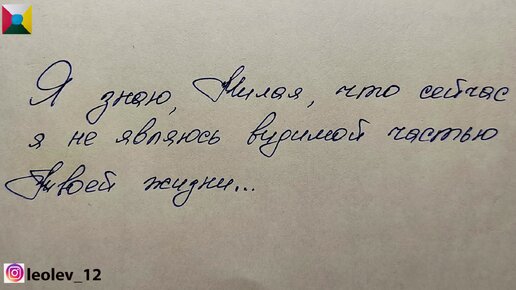 Я знаю, Милая, что сейчас
я не являюсь видимой частью
Твоей жизни...
leolev_12